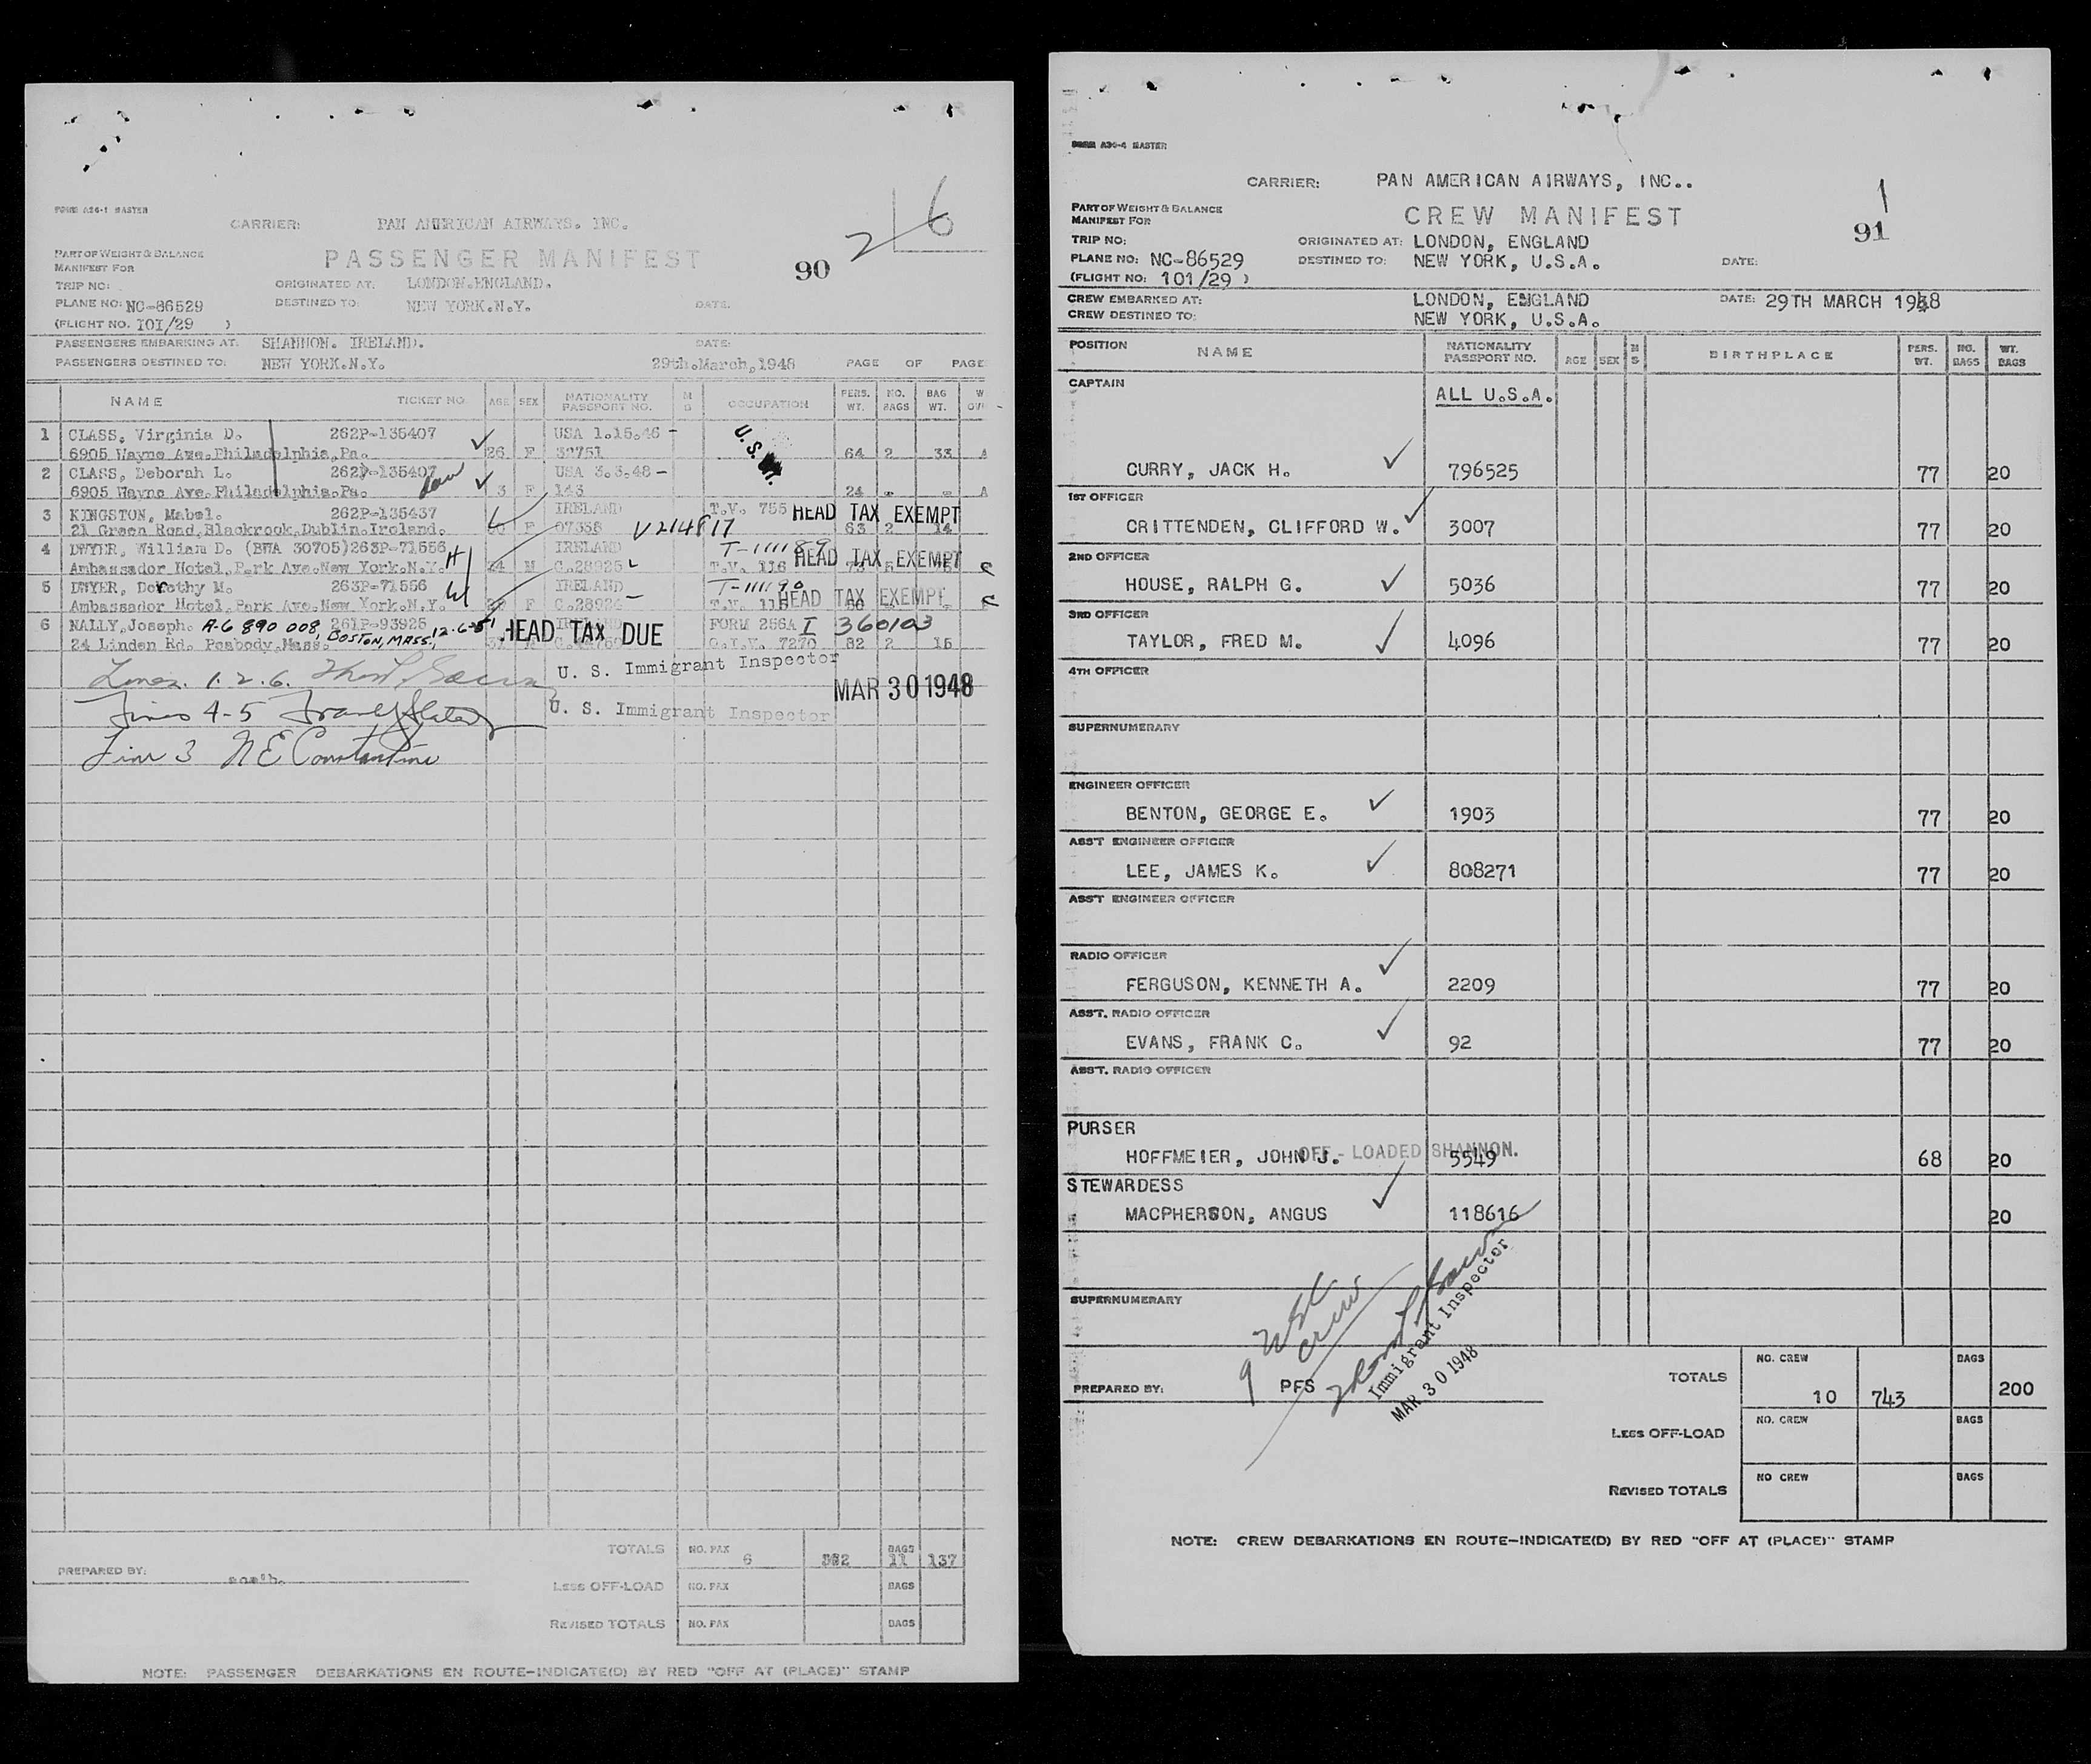 FORM A26-1 MASTER
CARRIER: PAN AMERICAN AIRWAYS. INC.
216
PART OF WEIGHT & BALANCE
MANIFEST FOR
PASSENGER MANIFEST
90
TRIP NO:
ORIGINATED AT: LONDON.ENGLAND.
PLANE NO: NC-86529
DESTINED TO: NEW YORK.N.Y.
DATE.
(FLIGHT NO. 101/29 )
PASSENGERS EMBARKING AT: SHANNON. IRELAND.
DATE:
PASSENGERS DESTINED TO: NEW YORK.N.Y.
29th.March,1948
PAGE OF PAGE
NAME TICKET NO. AGE SEX NATIONALITY PASSPORT NO. M S OCCUPATION PERS. WT. NO. BAGS BAG WT.
1 CLASS, Virginia D. 262P-135407 USA 1.15.46 -
6905 Wayne Ave.Philadelphia,Pa. 26 F 32751 64 2 33 A
2 CLASS, Deborah L. 262P-135407 USA 3.3.48 -
6905 Wayne Ave.Philadelphia,Pa. 3 F 143 24 - - A
3 KINGSTON, Mabel. 262P-135437 IRELAND T.V. 755 HEAD TAX EXEMPT
21 Green Road,Blackrock,Dublin.Ireland. F 07358 V214817 63 2 14
4 DWYER, William D. (BWA 30705)263P-71556 H IRELAND T-111189 HEAD TAX EXEMPT
Ambassador Hotel,Park Ave.New York.N.Y. M C.28925 T.V. 116
5 DWYER, Dorothy M. 263P-71556 W IRELAND T-111190
Ambassador Hotel,Park Ave.New York.N.Y. F HEAD TAX EXEMPT
6 NALLY,Joseph. A-6 890 008, BOSTON, MASS, 261P-93925 HEAD TAX DUE FORM 256A I 360103
24 Linden Rd. Peabody,Mass. 7270 82 2 15
Lines. 1. 2. 6.
U. S. Immigrant Inspector
MAR 30 1948
Lines 4-5
U. S. Immigrant Inspector
Line 3 N E Constantine
TOTALS NO. PAX 6 BAGS 11 137
PREPARED BY:
LESS OFF-LOAD NO. PAX BAGS
REVISED TOTALS NO. PAX BAGS
NOTE: PASSENGER DEBARKATIONS EN ROUTE-INDICATE(D) BY RED "OFF AT (PLACE)" STAMP
FORM A26-4 MASTER
CARRIER: PAN AMERICAN AIRWAYS, INC..
PART OF WEIGHT & BALANCE
MANIFEST FOR
CREW MANIFEST
1
91
TRIP NO:
ORIGINATED AT: LONDON, ENGLAND
PLANE NO: NC-86529
DESTINED TO: NEW YORK, U.S.A.
DATE:
(FLIGHT NO: 101/29 )
CREW EMBARKED AT: LONDON, ENGLAND
DATE: 29TH MARCH 1948
CREW DESTINED TO: NEW YORK, U.S.A.
POSITION NAME NATIONALITY PASSPORT NO. AGE SEX M S BIRTHPLACE PERS. WT. NO. BAGS WT. BAGS
CAPTAIN
ALL U.S.A.
CURRY, JACK H. 796525 77 20
1ST OFFICER
CRITTENDEN, CLIFFORD W. 3007 77 20
2ND OFFICER
HOUSE, RALPH G. 5036 77 20
3RD OFFICER
TAYLOR, FRED M. 4096 77 20
4TH OFFICER
SUPERNUMERARY
ENGINEER OFFICER
BENTON, GEORGE E. 1903 77 20
ASS'T ENGINEER OFFICER
LEE, JAMES K. 808271 77 20
ASS'T ENGINEER OFFICER
RADIO OFFICER
FERGUSON, KENNETH A. 2209 77 20
ASS'T. RADIO OFFICER
EVANS, FRANK C. 92 77 20
ASS'T. RADIO OFFICER
PURSER
HOFFMEIER, JOHN J. OFF - LOADED SHANNON. 5549 68 20
STEWARDESS
MACPHERSON, ANGUS 118616 20
SUPERNUMERARY
9 USC
crew
Immigrant Inspector
MAR 30 1948
PREPARED BY: PFS
TOTALS NO. CREW 10 743 BAGS 200
LESS OFF-LOAD NO. CREW BAGS
REVISED TOTALS NO CREW BAGS
NOTE: CREW DEBARKATIONS EN ROUTE-INDICATE(D) BY RED "OFF AT (PLACE)" STAMP